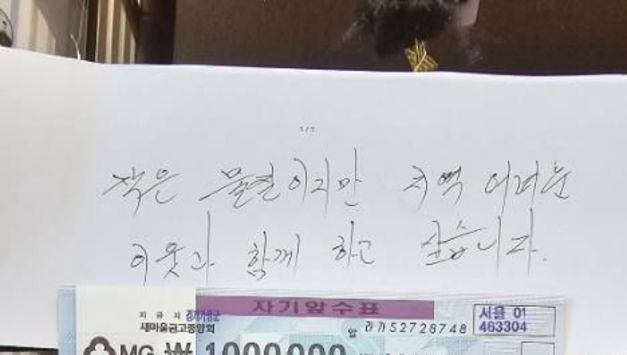 5/5
작은 물질이지만 지역 어려운
이웃과 함께 하고 싶습니다.
자기앞수표
지급지
새마을금고중앙회
라가52728748
서울 01
463304
MG ₩ 1000000